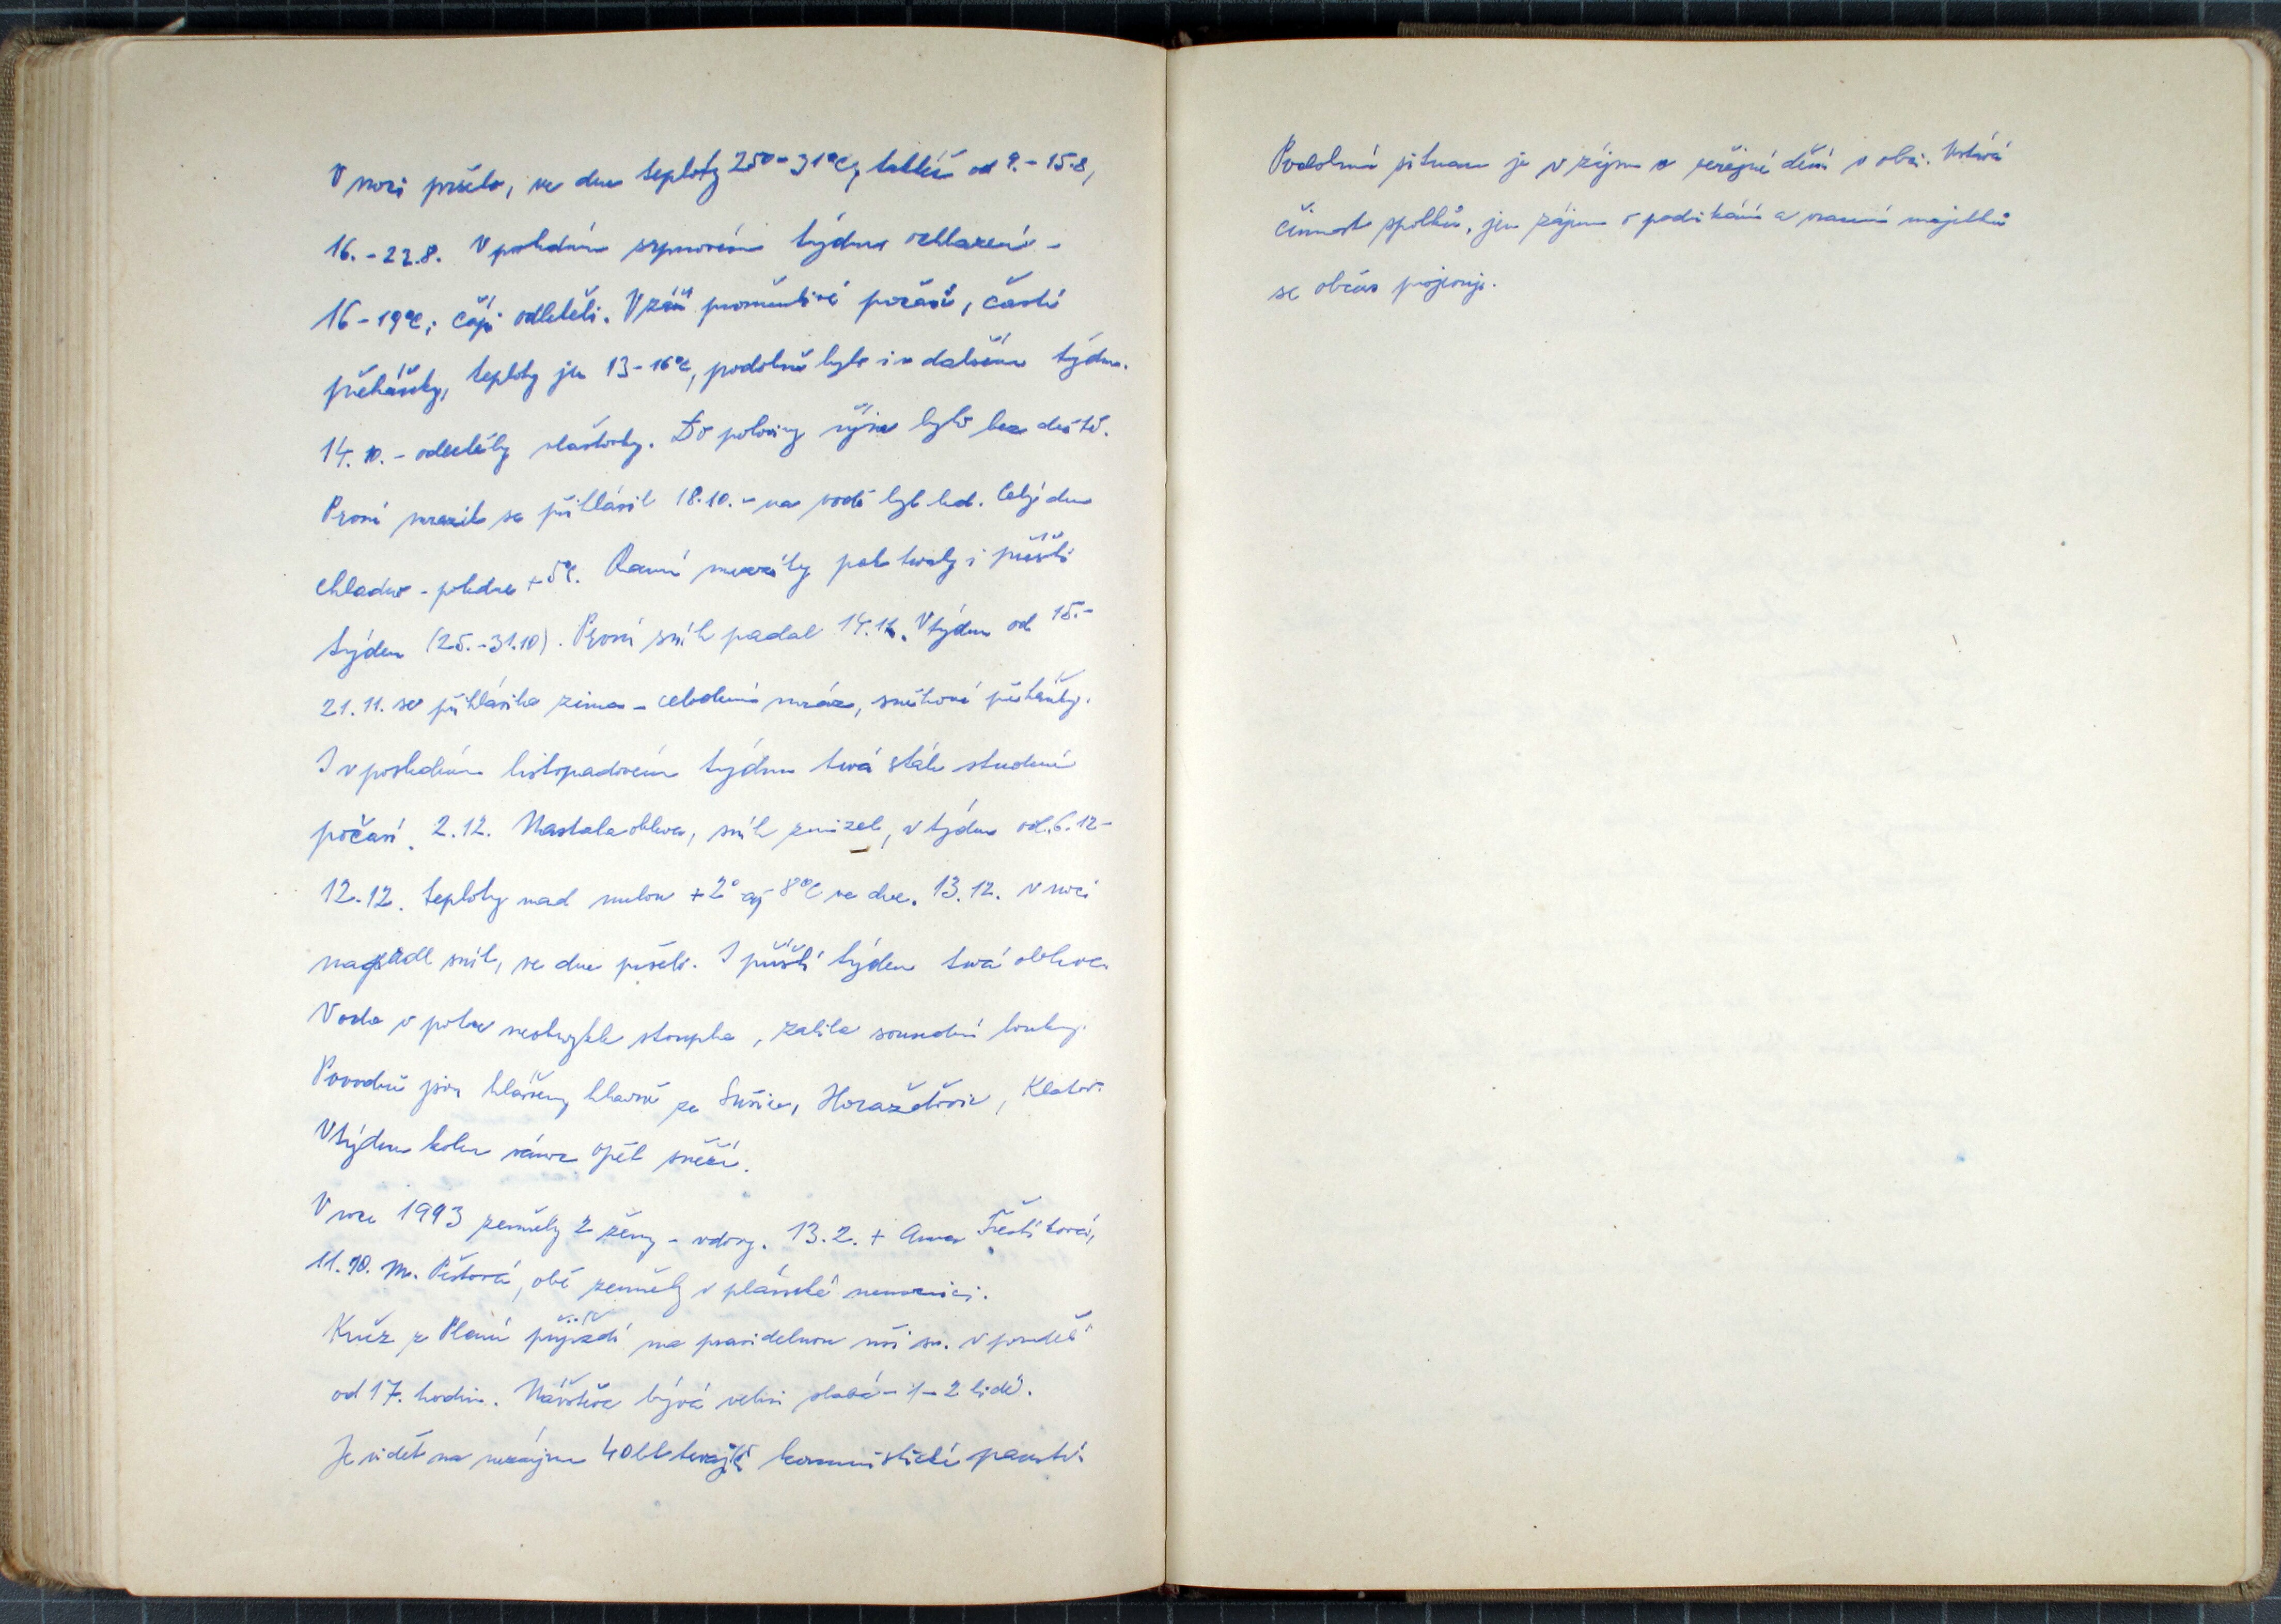 V noci pršelo, ve dne teploty 25°-31°C, taktéž od 9.-15.8,
16.-22.8. V posledním srpnovém týdnu ochlazení -
16-19°C; čápi odletěli. V září proměnlivé počasí, časté
přeháňky, teploty jen 13-16°C, podobně bylo i v dalším týdnu.
14.10. - odletěly vlaštovky. Do poloviny října bylo bez deště.
První mrazík se přihlásil 18.10. - na vodě byl led. Celý den
chladno - poledne +5°C. Ranní mrazíky pak trvaly i příští
týden (25.-31.10). První sníh padal 14.11. V týdnu od 15.-
21.11. se přihlásila zima - celodenní mráz, sněhové přeháňky.
I v posledním listopadovém týdnu trvá stále studené
počasí. 2.12. Nastala obleva, sníh zmizel, v týdnu od 6.12-
12.12. teploty nad nulou +2° až 8°C ve dne. 13.12. v noci
napadl sníh, ve dne pršelo. I příští týden trvá obleva.
Voda v potoce neobvykle stoupla, zalila sousední louky.
Povodně jsou hlášeny hlavně ze Sušice, Horažďovic, Klatov.
V týdnu kolem vánoc opět sněží.
V roce 1993 zemřely 2 ženy - vdovy. 13.2. + Anna Třeštíková,
11.10. M. Pěstová, obě zemřely v plánské nemocnici.
Kněz z Plané přijíždí na pravidelnou mši sv. v pondělí
od 17. hodin. Návštěva bývá velmi slabá - 1-2 lidé.
Je vidět na nezájmu 40 let trvající komunistické panství.
Podobná situace je v zájmu o veřejné dění v obci. Ustává
činnost spolků, jen zájem o podnikání a vracení majetků
se občas projevuje.